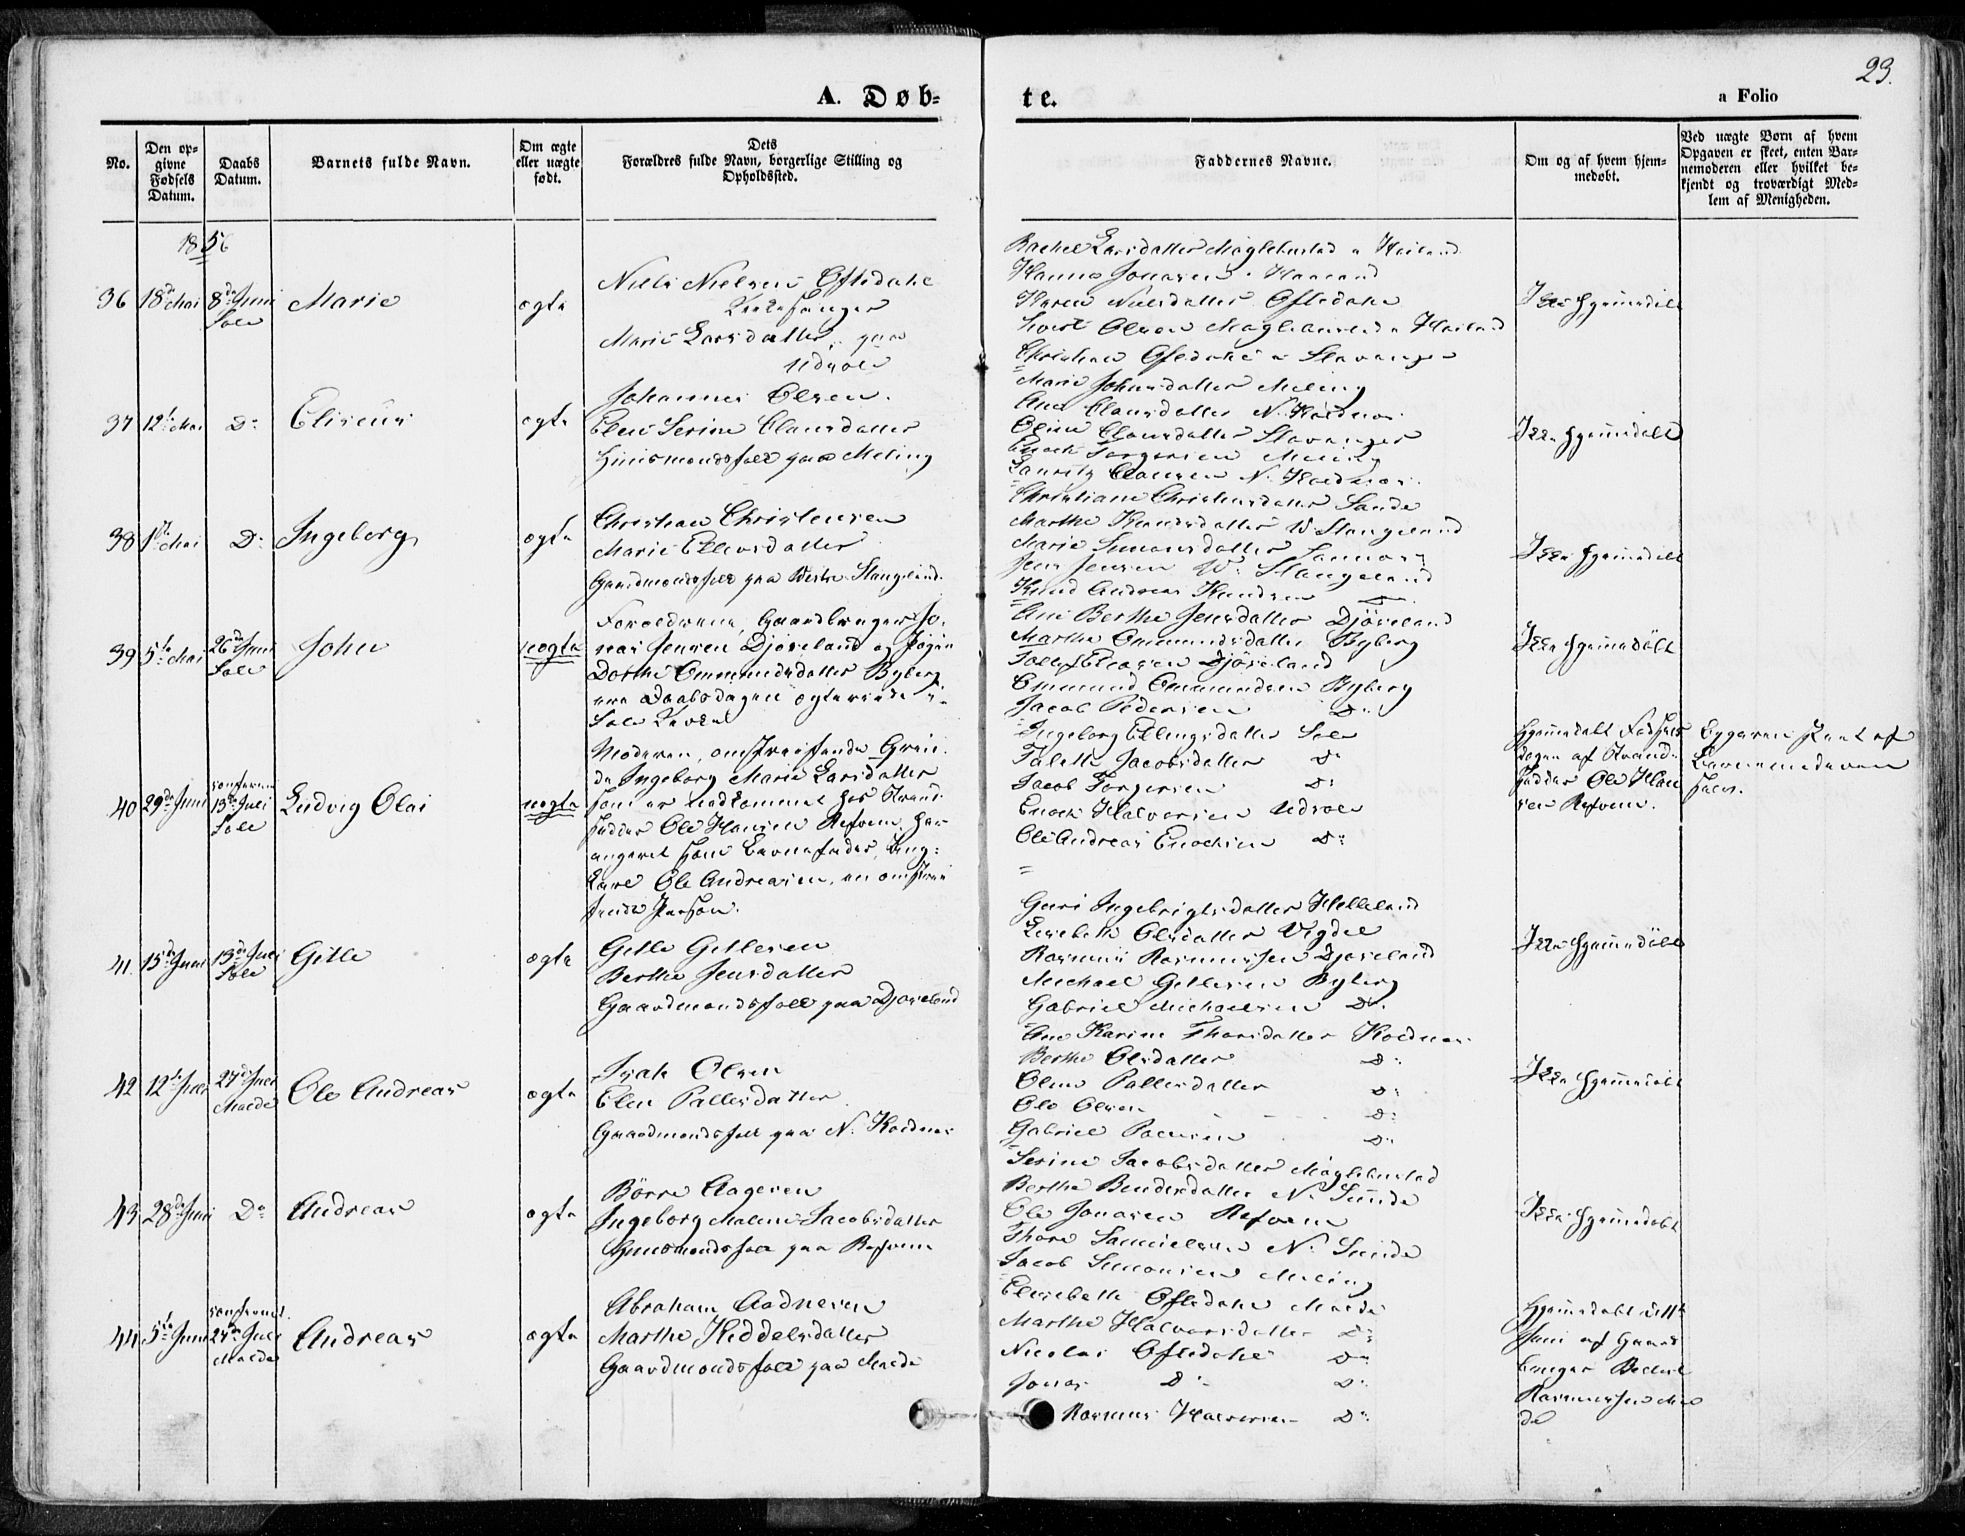 23.
A. Døb-
te.
a Folio
No.
Den op-
givne
Fødsels
Datum.
Daabs
Datum.
Barnets fulde Navn.
Om ægte
eller uægte
født.
Dets
Forældres fulde Navn, borgerlige Stilling og
Opholdssted.
Faddernes Navne.
Om og af hvem hjem-
medøbt.
Ved uægte Børn af hvem
Opgaven er skeet, enten Bar-
nemoderen eller hvilket be-
kjendt og troværdigt Med-
lem af Menigheden.
1856
36 18de Mai 8de Juni
Sole
Marie
ægte
Niels Nielsen Oftedahl
Kirkesanger
Marie Larsdatter, paa
Rachel Larsdatter
Hannes Jonasen
Karen Nielsdatter Oftedahl
Olsen
Christian Oftedahl Stavanger
Ikke hjemmedøbt
37 12te Mai Do
Eliseus
ægte
Johannes Olsen
Elen Serine Clausdatter
Huusmandsfolk paa Meling
Marie Johnsdatter Meling
Ane Clausdatter N.
Oline Clausdatter Stavanger
Enoch Torgersen Meling
Lauritz Clausen N.
Ikke hjemmedøbt
38 1ste Mai Do
Ingeborg
ægte
Christian Christensen
Marie Ellevsdatter
Gaardmandsfolk paa Vestre Stangeland
Christiane Christensdatter Sande
Marthe Knudsdatter V. Stangeland
Marie Simonsdatter
Jens Jensen V. Stangeland
Knud Andreas Knudsen Do
Ikke hjemmedøbt
39 5te Mai 26de Juni
Sole
John
uægte
Forældrene, Gaardbruger Jo-
nas Jensen Djøseland og Pigen
Dorthe Ommundsdatter Byberg
Daabsdagen ægteviede i
Sole Kirke
Ane Berthe Jensdatter Djøseland
Marthe Ommundsdatter Byberg
Eliasen Djøseland
Ommund Ommundsen Byberg
Jacob Pedersen Do
Ikke hjemmedøbt
40 29de Juni
13de Juli
Sole
Ludvig Olai
uægte
Moderen, omstreifende Qvin-
de Ingeborg Marie Larsdatter
som er nedkommet hos Strand-
sidder Ole Hansen Refsnes, har
angivet som Barnefader, Ung-
karl Ole Andreasen, en omstrei-
fende Person.
Ingeborg Ellingsdatter Sole
Talette Jacobsdatter Do
Jacob Torgersen Do
Enoch Halvorsen
Ole Andreas Enochsen Do
Hjemmedøbt Fødsels
dagen af Strand-
sidder Ole Han-
sen
Opgaven skeet af
Barnemoderen
selv.
41 15de Juni 13de Juli
Sole
Gitle
ægte
Gitle Gitlesen
Berthe Jensdatter
Gaardmandsfolk paa Djøseland
Guri Ingebrigtsdatter Helleland
Lisebeth Olsdatter Vigdel
Rasmus Rasmussen Djøseland
Michael Gitlesen Byberg
Gabriel Michaelsen Do.
Ikke hjemmedøbt
42 12te Juli 27de Juli
Malde
Ole Andreas
ægte
Isak Olsen
Elen Pallesdatter
Gaardmandsfolk paa N.
Ane Karine Thorsdatter
Berthe Olsdatter Do
Oline Pallesdatter Do
Ole Olsen Do
Gabriel Do
Ikke hjemmedøbt
43 28de Juni Do
Andreas
ægte
Børre Aagesen
Ingeborg Malene Jacobsdatter
Huusmandsfolk paa
Serine Jacobsdatter
Berthe N. Sunde
Ole Jonasen
Thore Samuelsen N. Sunde
Jacob Simonsen Meling
Ikke hjemmedøbt
44 5te Juni
27de Juli
Malde
Andreas
ægte
Abraham Aadnesen
Marthe Kiddelsdatter
Gaardmandsfolk paa Malde
Elisebeth Oftedahl Malde
Marthe Halvorsdatter Do
Nicolai Oftedahl Do
Jonas Do Do
Rasmus Halvorsen Do
Hjemmedøbt
Juni af Gaard-
bruger
Rasmussen Mal-
de